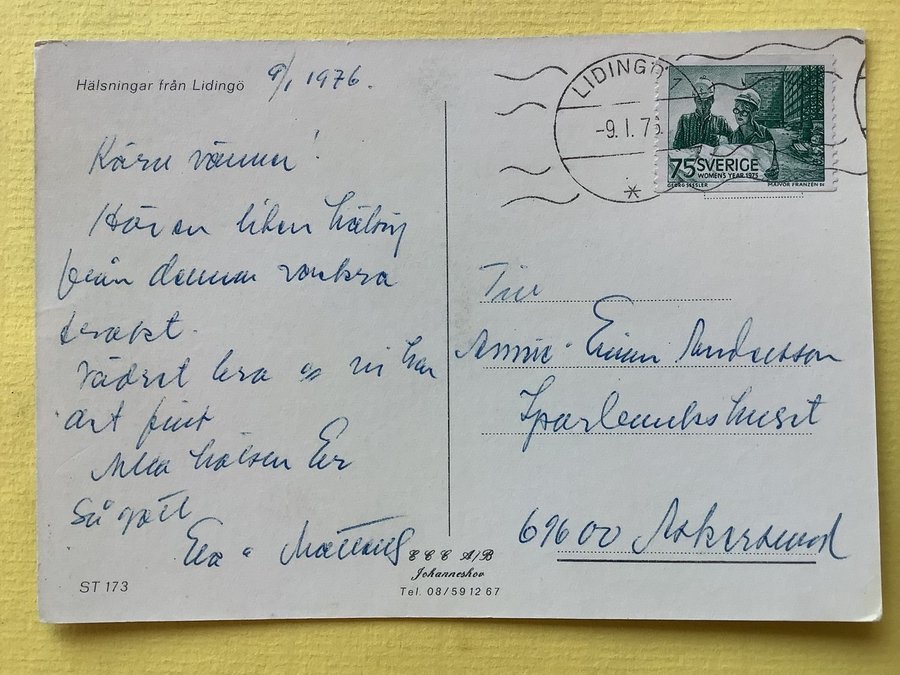 Hälsningar från Lidingö
9/1 1976.
Kära vänner!
Här en liten hälsng
från denna vackra
trakt.
Vädret bra o vi har
det fint
Alla hälsen Er
så gott
Eva o
ST 173
C C C A/B
Johanneshov
Tel. 08/59 12 67
LIDINGÖ 1
-9.1.76
75 SVERIGE
WOMEN'S YEAR 1975
GEORG SESSLER
MAJVOR FRANZÉN SC
Till
Andersson
Sparbankshuset
696 00 Askersund